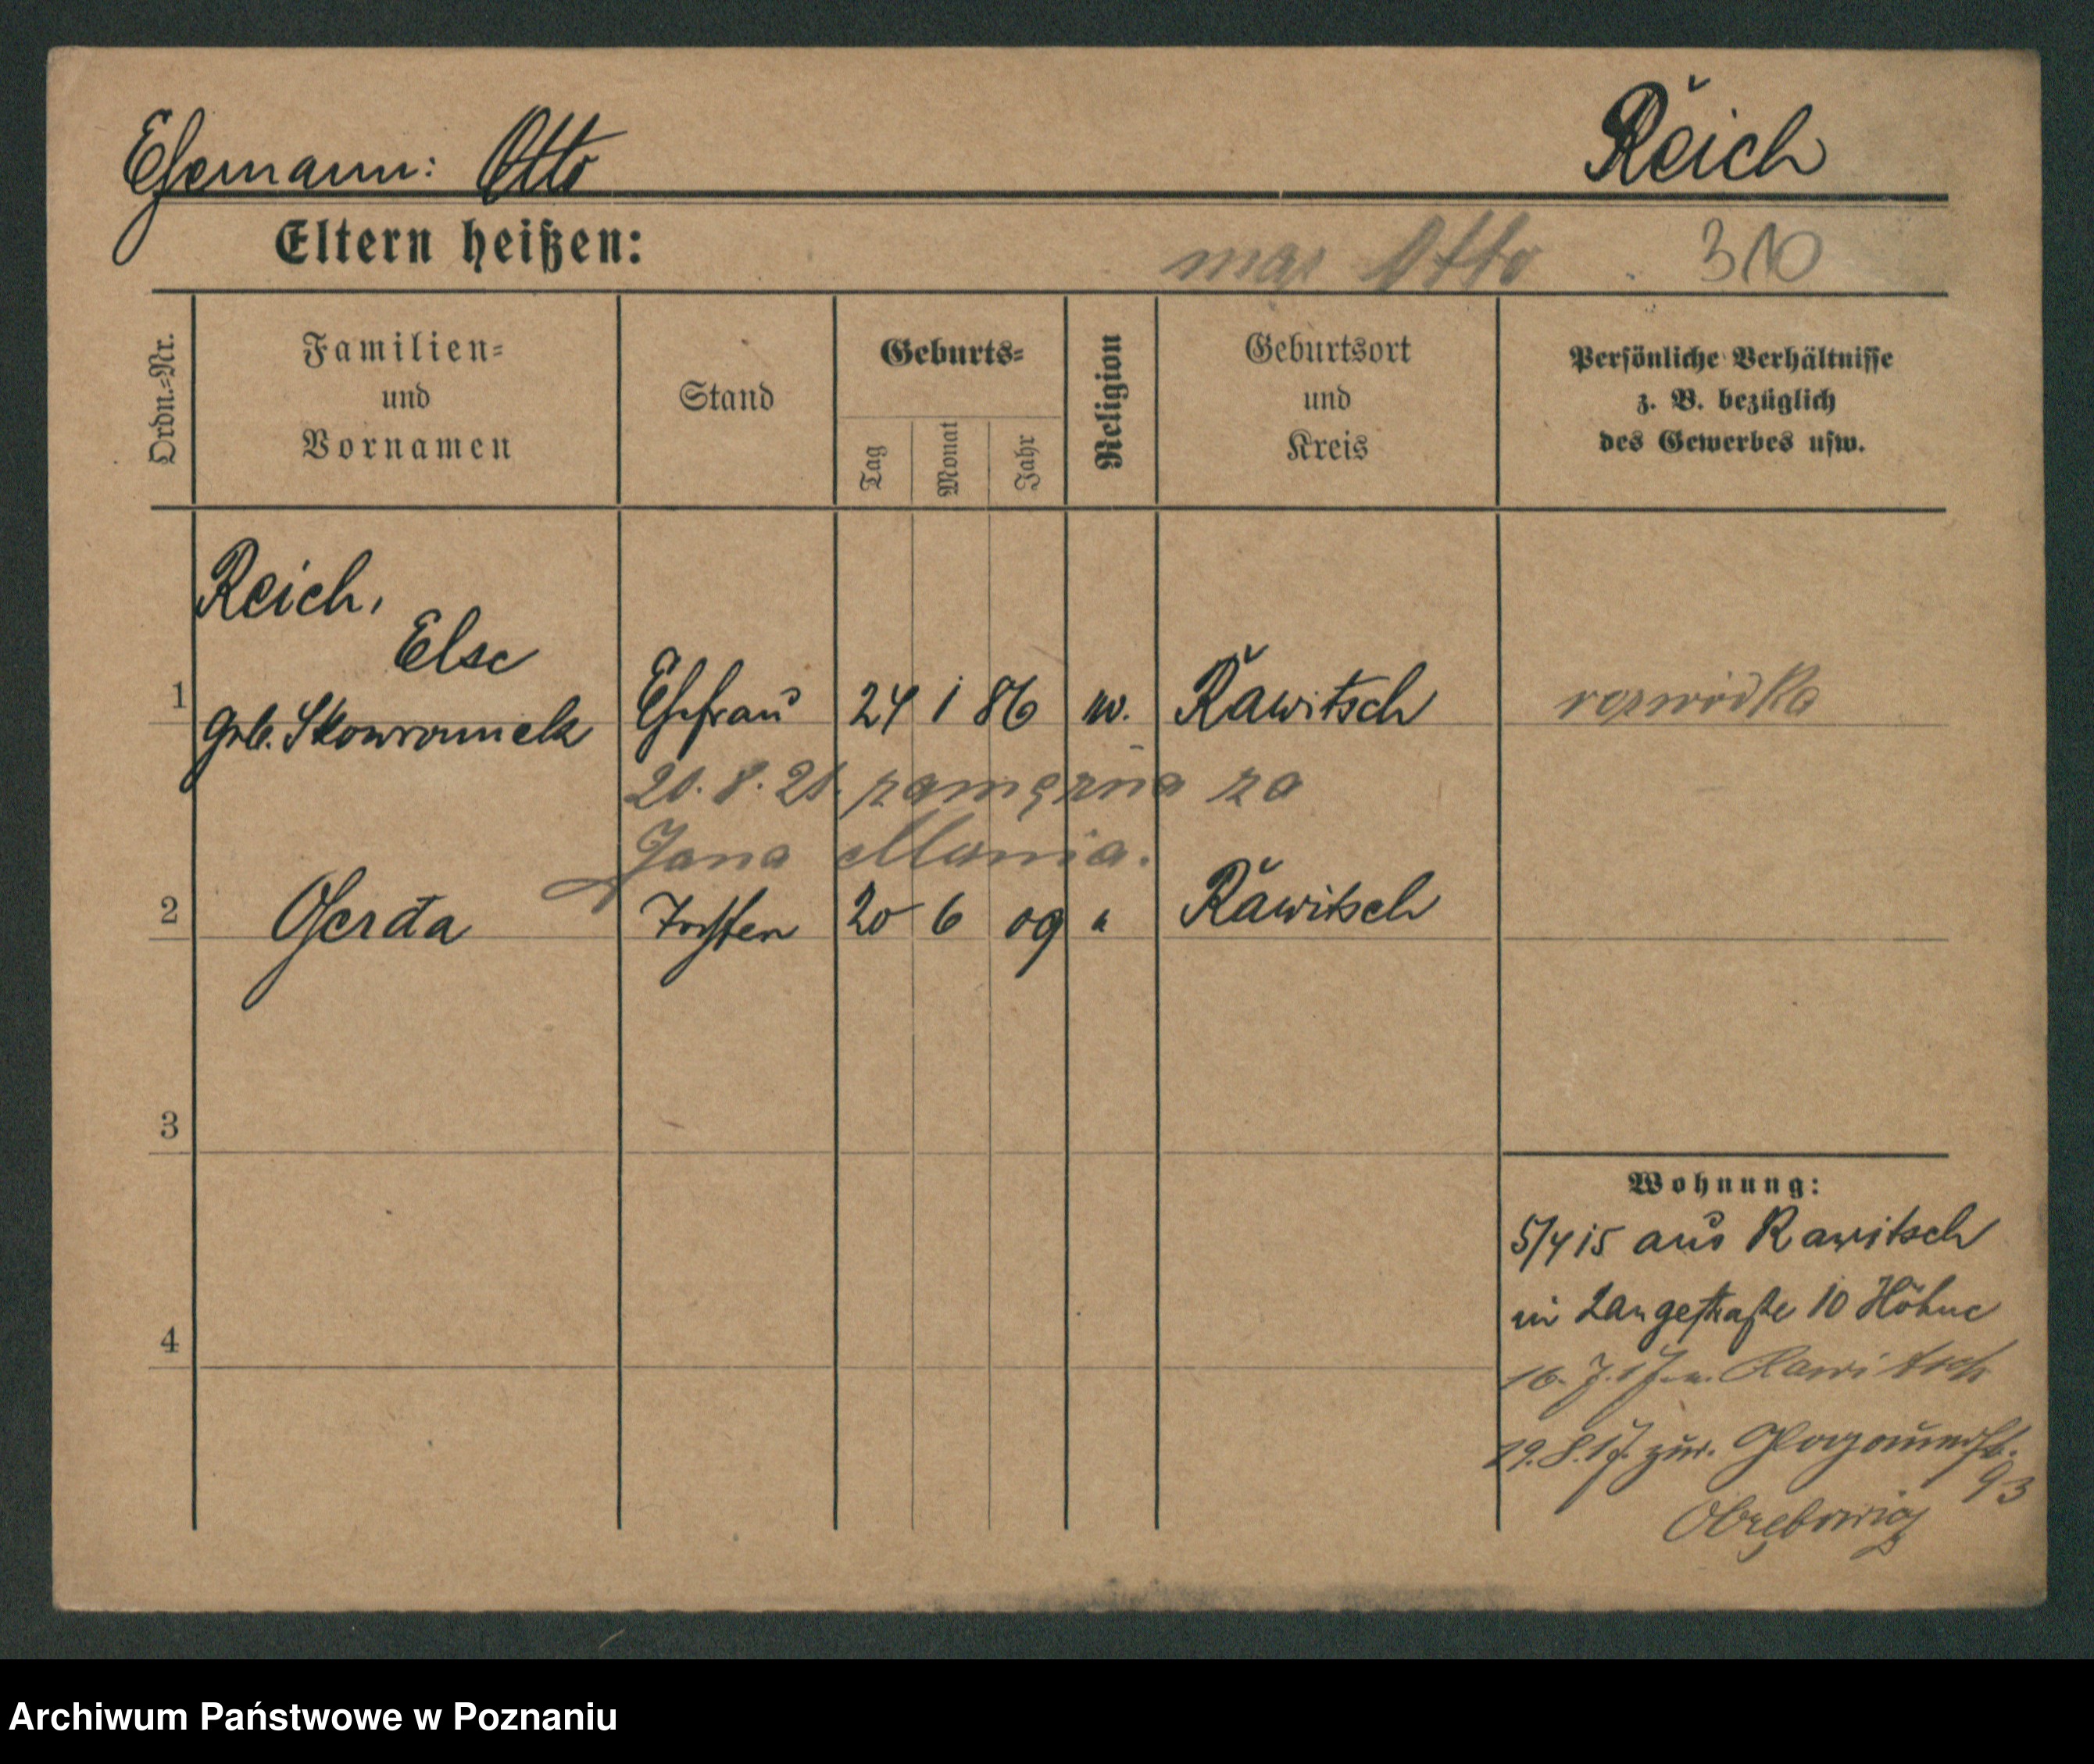 Ehemann: Otto Reich
Eltern heißen:
mąż Otto 310
Ordn.-Nr.
Familien-
und
Vornamen
Stand
Geburts-
Tag
Monat
Jahr
Religion
Geburtsort
und
Kreis
Persönliche Verhältnisse
z. B. bezüglich
des Gewerbes usw.
Reich,
Else
1 geb. Skowronnek Ehefrau 24 1 86 Rawitsch rozwódka
20.8.21. zamężna za
Jana Mania.
2 Gerda Tochter 20 6 09 " Rawitsch
3
4
Wohnung:
5/4 15 aus Rawitsch
in Langestraße 10 Höhne
16.7.17. n. Rawitsch
29.8.17. zur. Glogauerstr.
93
Obrębowicz
Archiwum Państwowe w Poznaniu